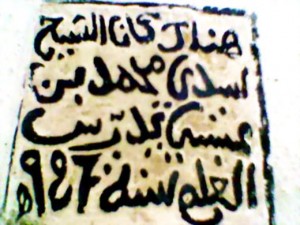 هنا كان الشيخ
سيدي محمد بن
عيسى يدرس
العلم سنة 947ه